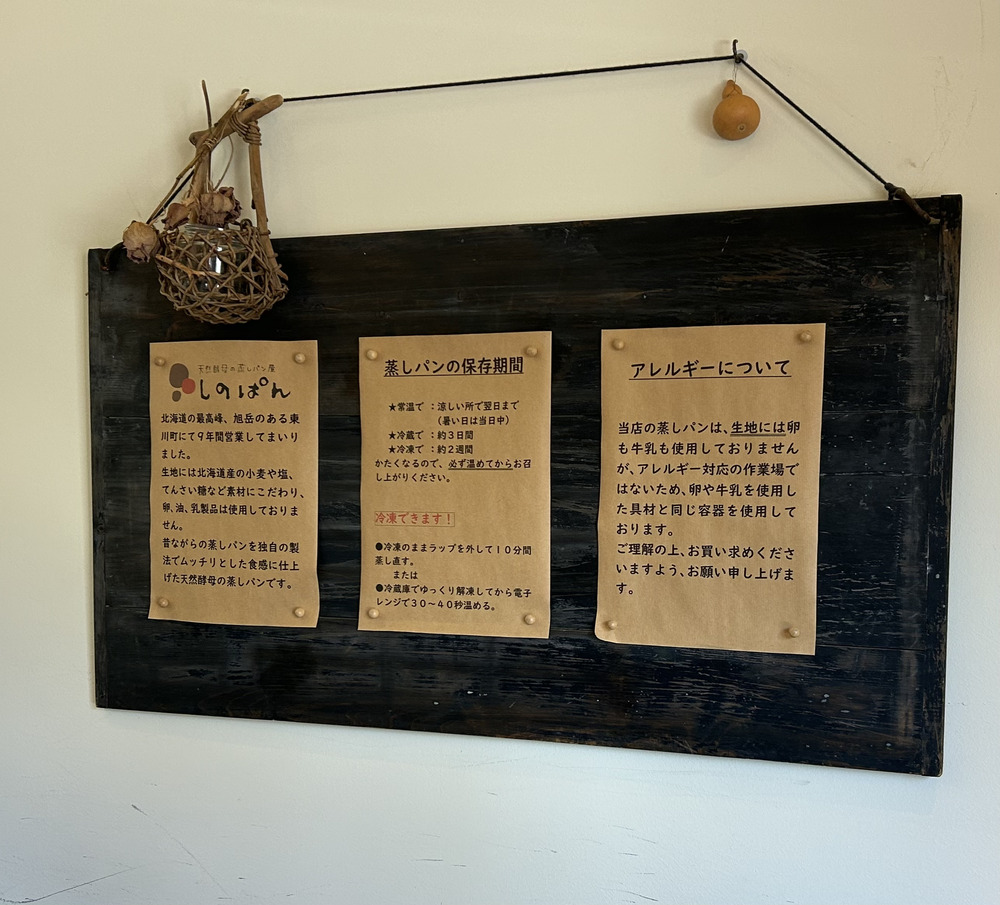 天然酵母の蒸しパン屋
しのぱん
北海道の最高峰、旭岳のある東
川町にて９年間営業してまいり
ました。
生地には北海道産の小麦や塩、
てんさい糖など素材にこだわり、
卵、油、乳製品は使用しておりま
せん。
昔ながらの蒸しパンを独自の製
法でムッチリとした食感に仕上
げた天然酵母の蒸しパンです。
蒸しパンの保存期間
★常温で ：涼しい所で翌日まで
（暑い日は当日中）
★冷蔵で ：約３日間
★冷凍で ：約２週間
かたくなるので、必ず温めてからお召
し上がりください。
冷凍できます！
●冷凍のままラップを外して１０分間
蒸し直す。
または
●冷蔵庫でゆっくり解凍してから電子
レンジで３０～４０秒温める。
アレルギーについて
当店の蒸しパンは、生地には卵
も牛乳も使用しておりません
が、アレルギー対応の作業場で
はないため、卵や牛乳を使用し
た具材と同じ容器を使用して
おります。
ご理解の上、お買い求めくださ
いますよう、お願い申し上げま
す。